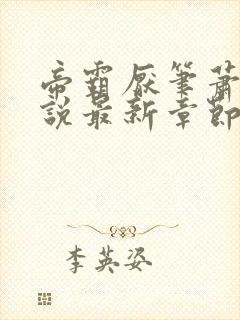 帝霸厌笔萧
說最新章節
李英姿